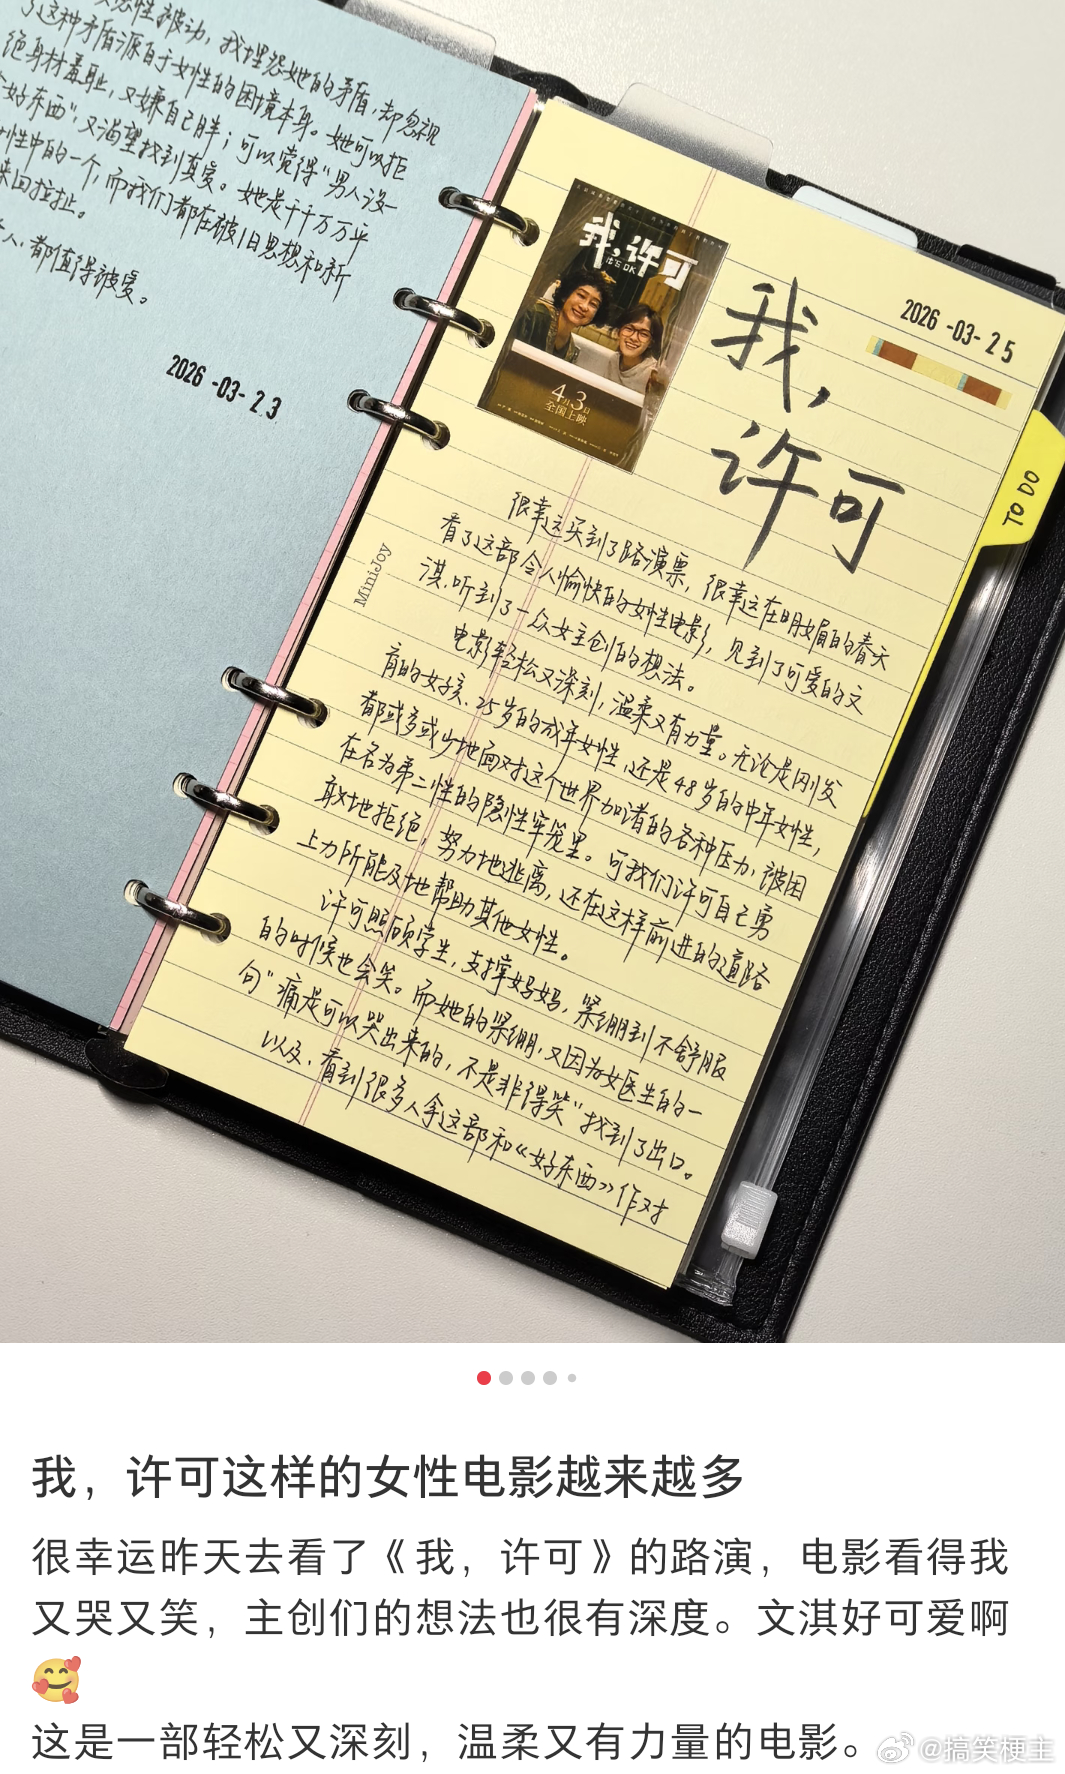 性被动，我埋怨她的矛盾，却忽视
了这种矛盾源自于女性的困境本身。她可以拒
绝身材羞耻，又嫌自己胖；可以觉得“男人没一
个好东西”，又渴望找到真爱。她是千千万万平
性中的一个，而我们都在被旧思想和新
来回拉扯。
人，都值得被爱。
2026 -03- 23
我，许可
IT'S OK
4月3日
全国上映
2026 -03- 25
我，
许可
TO DO
MiniJoy
很幸运买到了路演票，很幸运在明媚的春天
看了这部令人愉快的女性电影，见到了可爱的文
淇，听到了一众女主创的想法。
电影轻松又深刻，温柔又有力量。无论是刚发
育的女孩、25岁的成年女性，还是48岁的中年女性，
都或多或少地面对这个世界加诸的各种压力，被困
在名为第二性的隐性牢笼里。可我们许可自己勇
敢地拒绝，努力地逃离，还在这样前进的道路
上力所能及地帮助其他女性。
许可照顾学生，支撑妈妈，紧绷到不舒服
的时候也会笑。而她的紧绷，又因为女医生的一
句“痛是可以哭出来的，不是非得笑”找到了出口。
以及，看到很多人拿这部和《好东西》作对
我，许可这样的女性电影越来越多
很幸运昨天去看了《我，许可》的路演，电影看得我
又哭又笑，主创们的想法也很有深度。文淇好可爱啊
这是一部轻松又深刻，温柔又有力量的电影。
@搞笑梗主